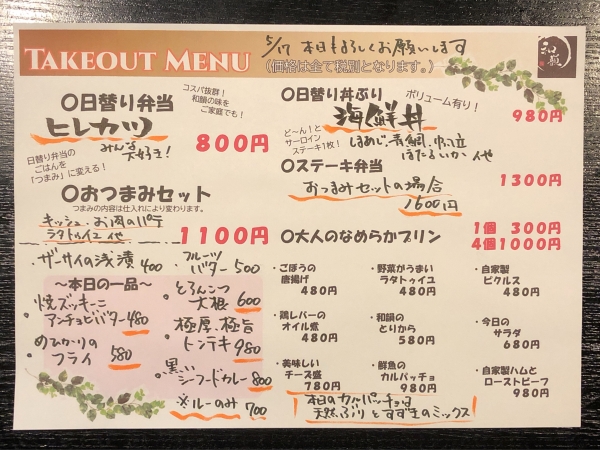 TAKEOUT MENU
5/17 本日もよろしくお願いします
(価格は全て税別となります。)
和韻
○日替り弁当
コスパ抜群!
和韻の味を
ご家庭でも!
ヒレカツ
みんな
大好き!
800円
日替り弁当の
ごはんを
「つまみ」に変える!
○おつまみセット
つまみの内容は仕入れにより変わります。
キッシュ・お肉のパテ
ラタトゥイユ 他
1100円
○日替り丼ぶり
ボリューム有り!
海鮮丼
980円
ど〜ん!と
サーロイン
ステーキ1枚!
しまあじ、青鯛、帆立
ほたるいか 他
○ステーキ弁当
1300円
おつまみセットの場合
1600円
○大人のなめらかプリン
1個 300円
4個1000円
・ザーサイの浅漬 400
・フルーツ
バター 500
〜本日の一品〜
・焼ズッキーニ
アンチョビバター 480
・めひかりの
フライ 580
・とろんこつ
大根 600
・極厚、極旨
トンテキ 980
・黒い
シーフードカレー 800
※ルーのみ 700
・ごぼうの
唐揚げ
480円
・野菜がうまい
ラタトゥイユ
480円
・自家製
ピクルス
480円
・鶏レバーの
オイル煮
480円
・和韻の
とりから
580円
・今日の
サラダ
680円
・美味しい
チーズ盛
780円
・鮮魚の
カルパッチョ
980円
・自家製ハムと
ローストビーフ
980円
本日のカルパッチョは
天然ぶりとすずきのミックス